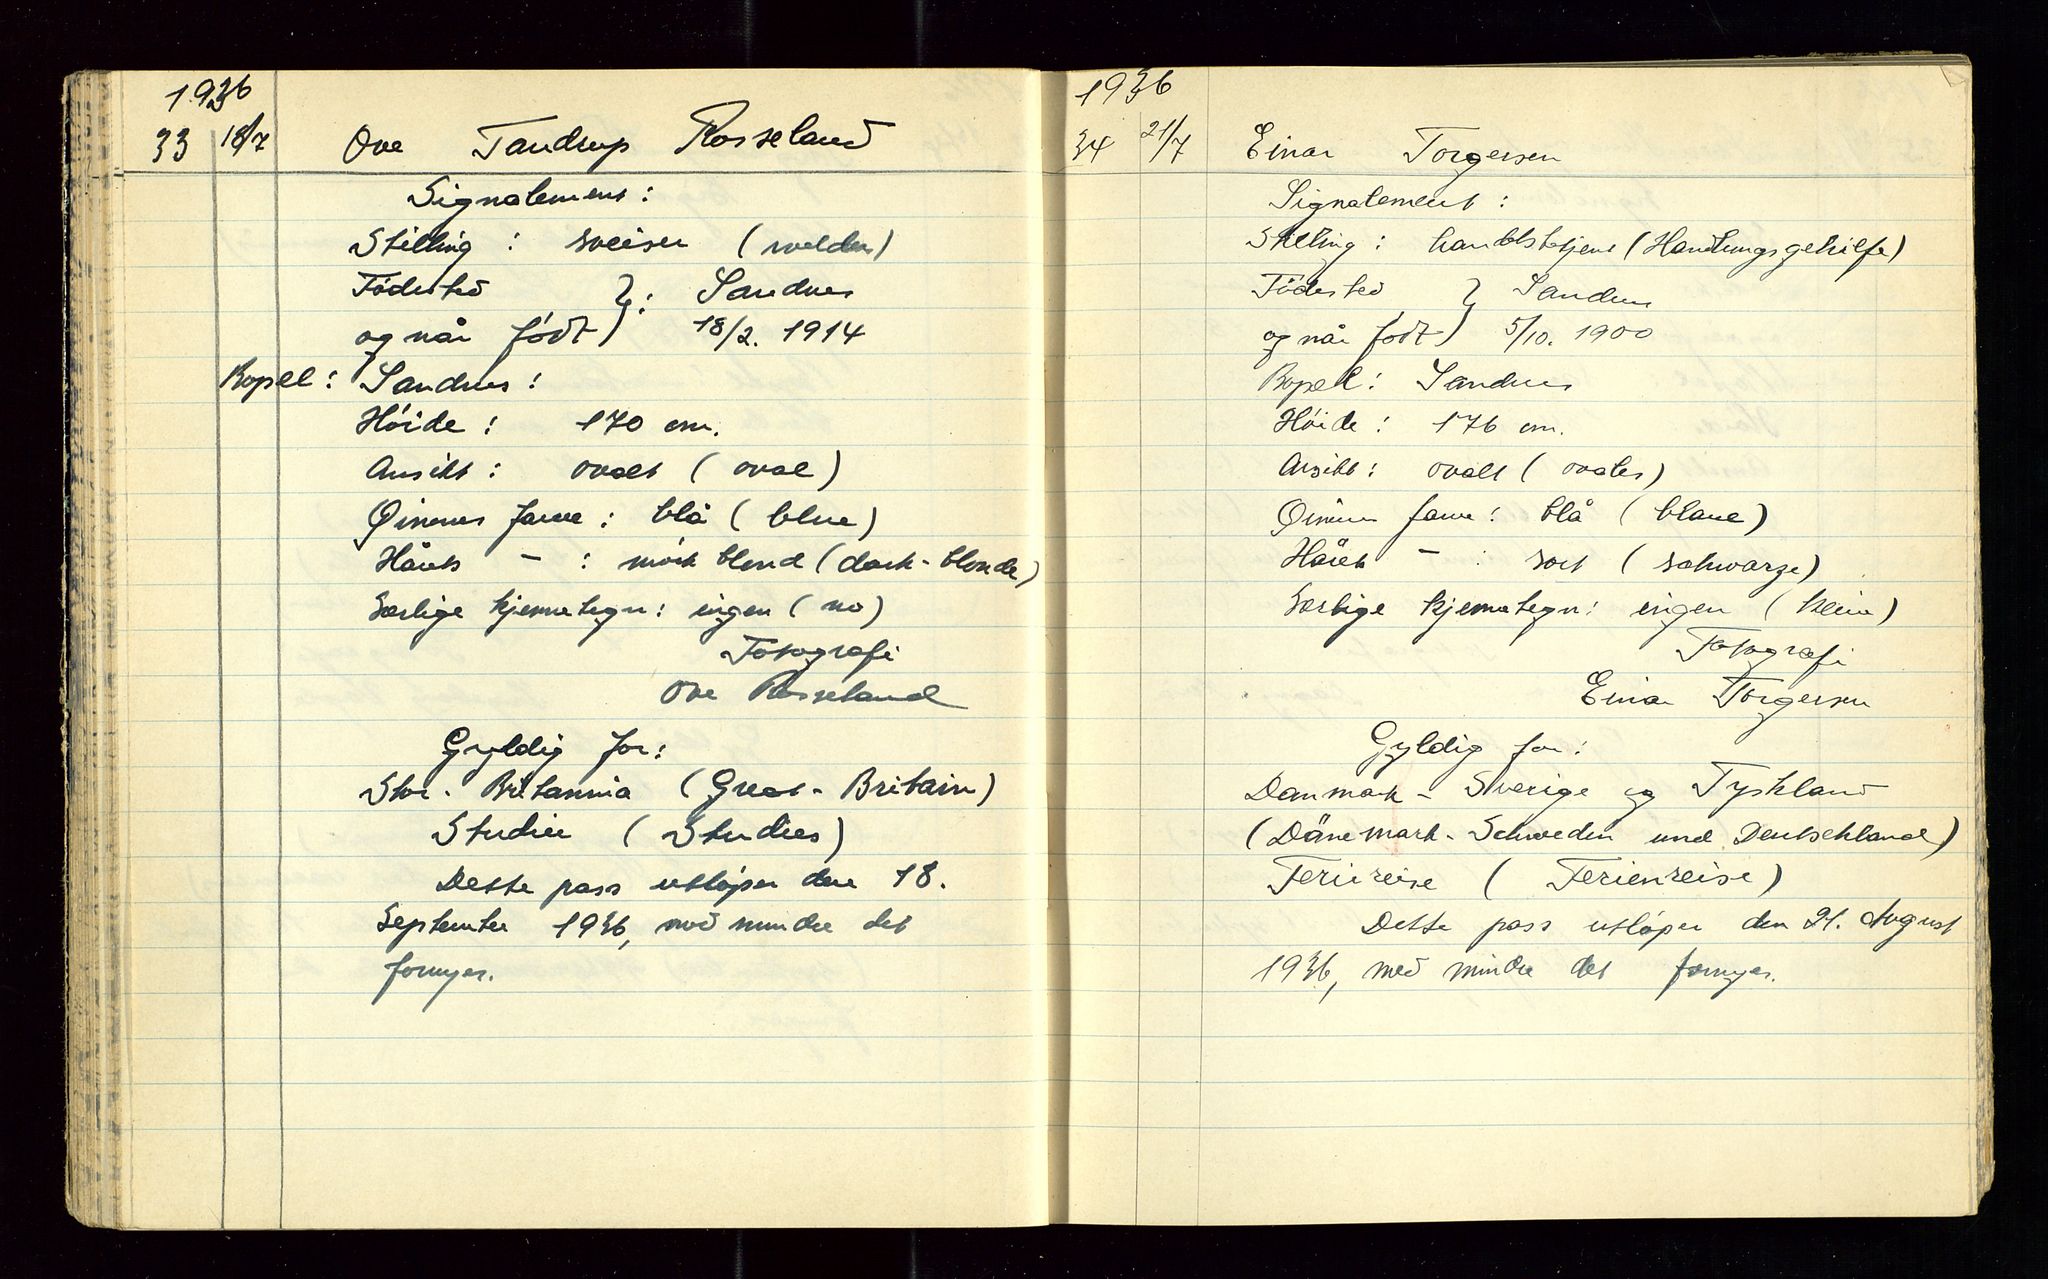 1936
33 18/7 Ove Tandrup Rosseland
Signalement:
Stilling: sveiser (welder)
Fødested } : Sandnes
og når født } 18/2. 1914
Bopel: Sandnes:
Høide: 170 cm.
Ansikt: ovalt (oval)
Øinenes farve: blå (blue)
Hårets — : mørk blond (dark-blonde)
Særlige kjennetegn: ingen (no)
Fotografi
Ove Rosseland
Gyldig for:
Stor-Britannia (Great-Britain)
Studier (Studies)
Dette pass utløper den 18.
September 1936, med mindre det
fornyes.
1936
34 21/7 Einar Torgersen
Signalement:
Stilling: handelsbetjent (Handlungsgehilfe)
Fødested } Sandnes
og når født } 5/10. 1900
Bopel: Sandnes
Høide: 176 cm.
Ansikt: ovalt (ovales)
Øinenes farve: blå (blaue)
Hårets — : sort (schwarze)
Særlige kjennetegn: ingen (keine)
Fotografi
Einar Torgersen
Gyldig for:
Danmark - Sverige og Tyskland
(Dänemark - Schweden und Deutschland)
Feriereise (Ferienreise)
Dette pass utløper den 21. August
1936, med mindre det fornyes.